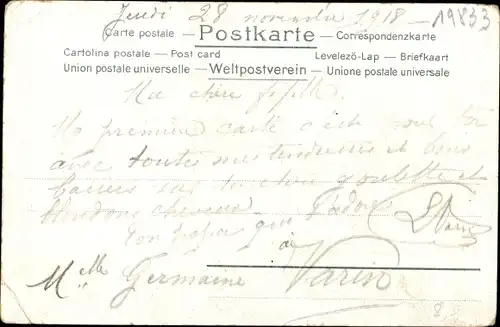 Jeudi 28 novembre 1918 19833
Carte postale — Postkarte — Correspondenzkarte
Cartolina postale — Post card Levelező-Lap — Briefkaart
Union postale universelle — Weltpostverein — Unione postale universale
Ma chère fifille.
Ma première carte c'est pour toi
avec toutes mes tendresses et bons
baisers sur ta et
blonds cheveux. t'adore
ton papa qui
à
Melle Germaine Varin